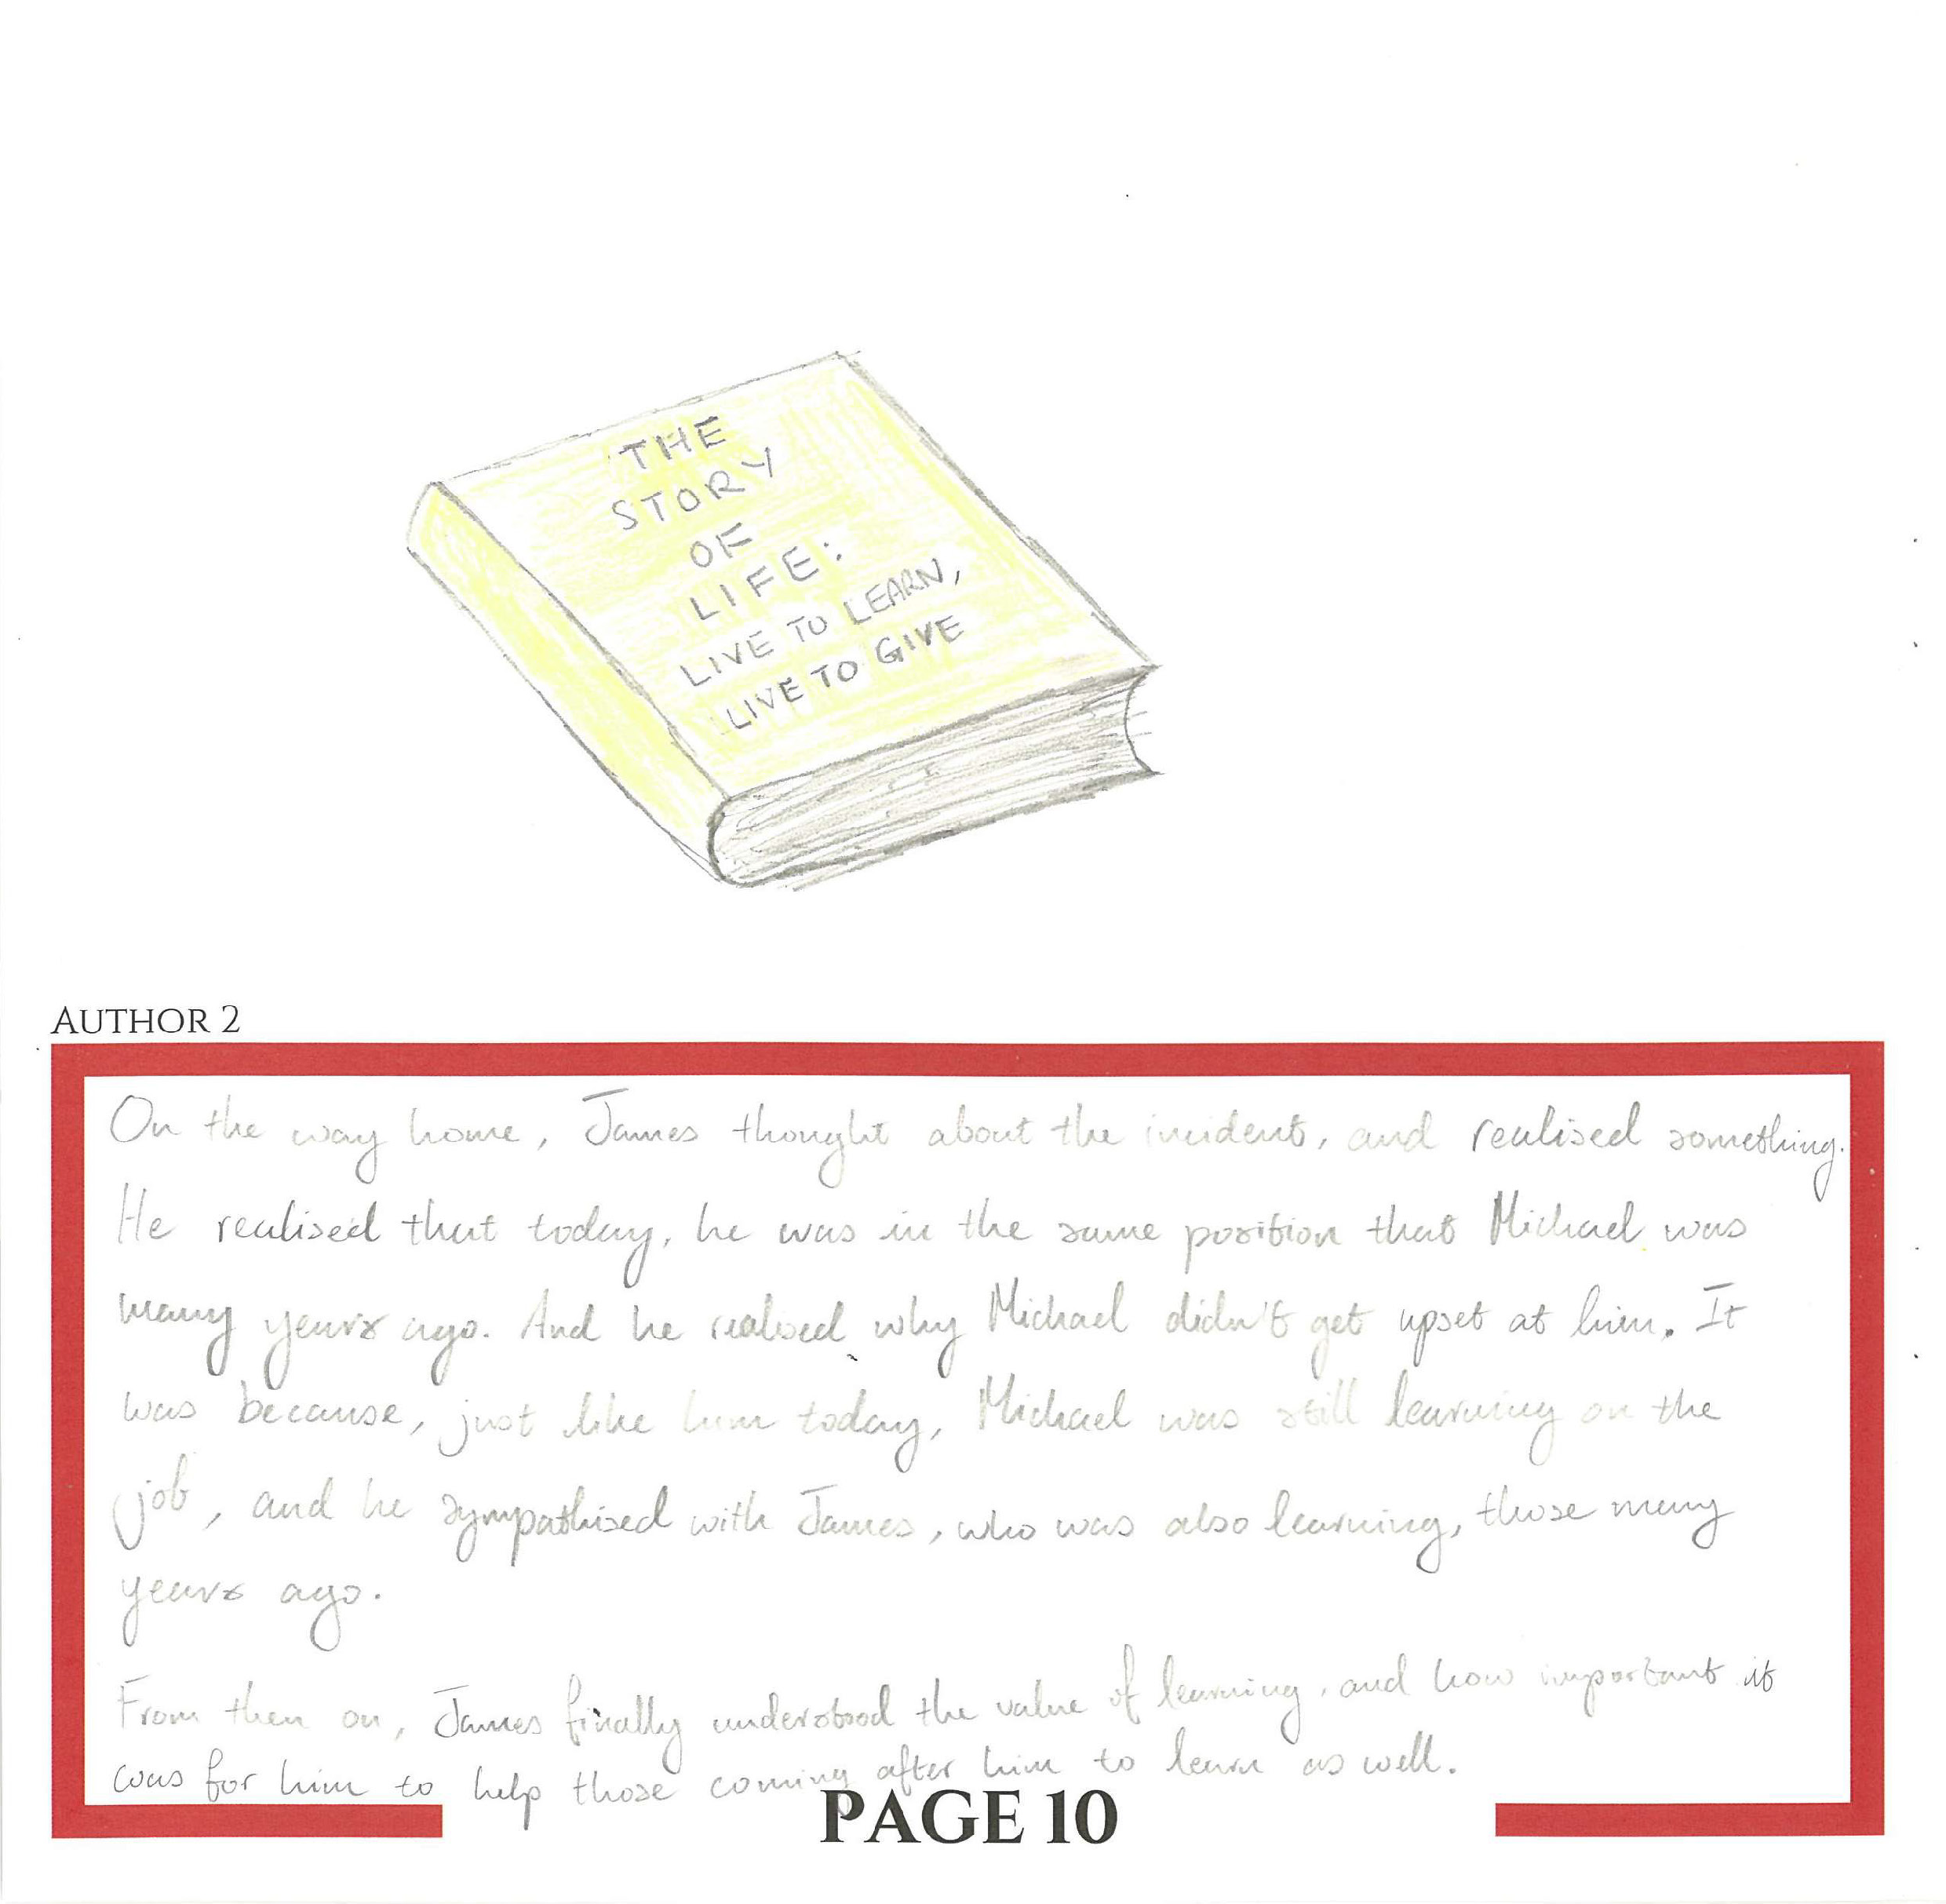 THE
STORY
OF
LIFE:
LIVE TO LEARN,
LIVE TO GIVE
AUTHOR 2
On the way home, James thought about the incident, and realised something.
He realised that today, he was in the same position that Michael was
many years ago. And he realised why Michael didn't get upset at him. It
was because, just like him today, Michael was still learning on the
job, and he sympathised with James, who was also learning, those many
years ago.
From then on, James finally understood the value of learning, and how important it
was for him to help those coming after him to learn as well.
PAGE 10